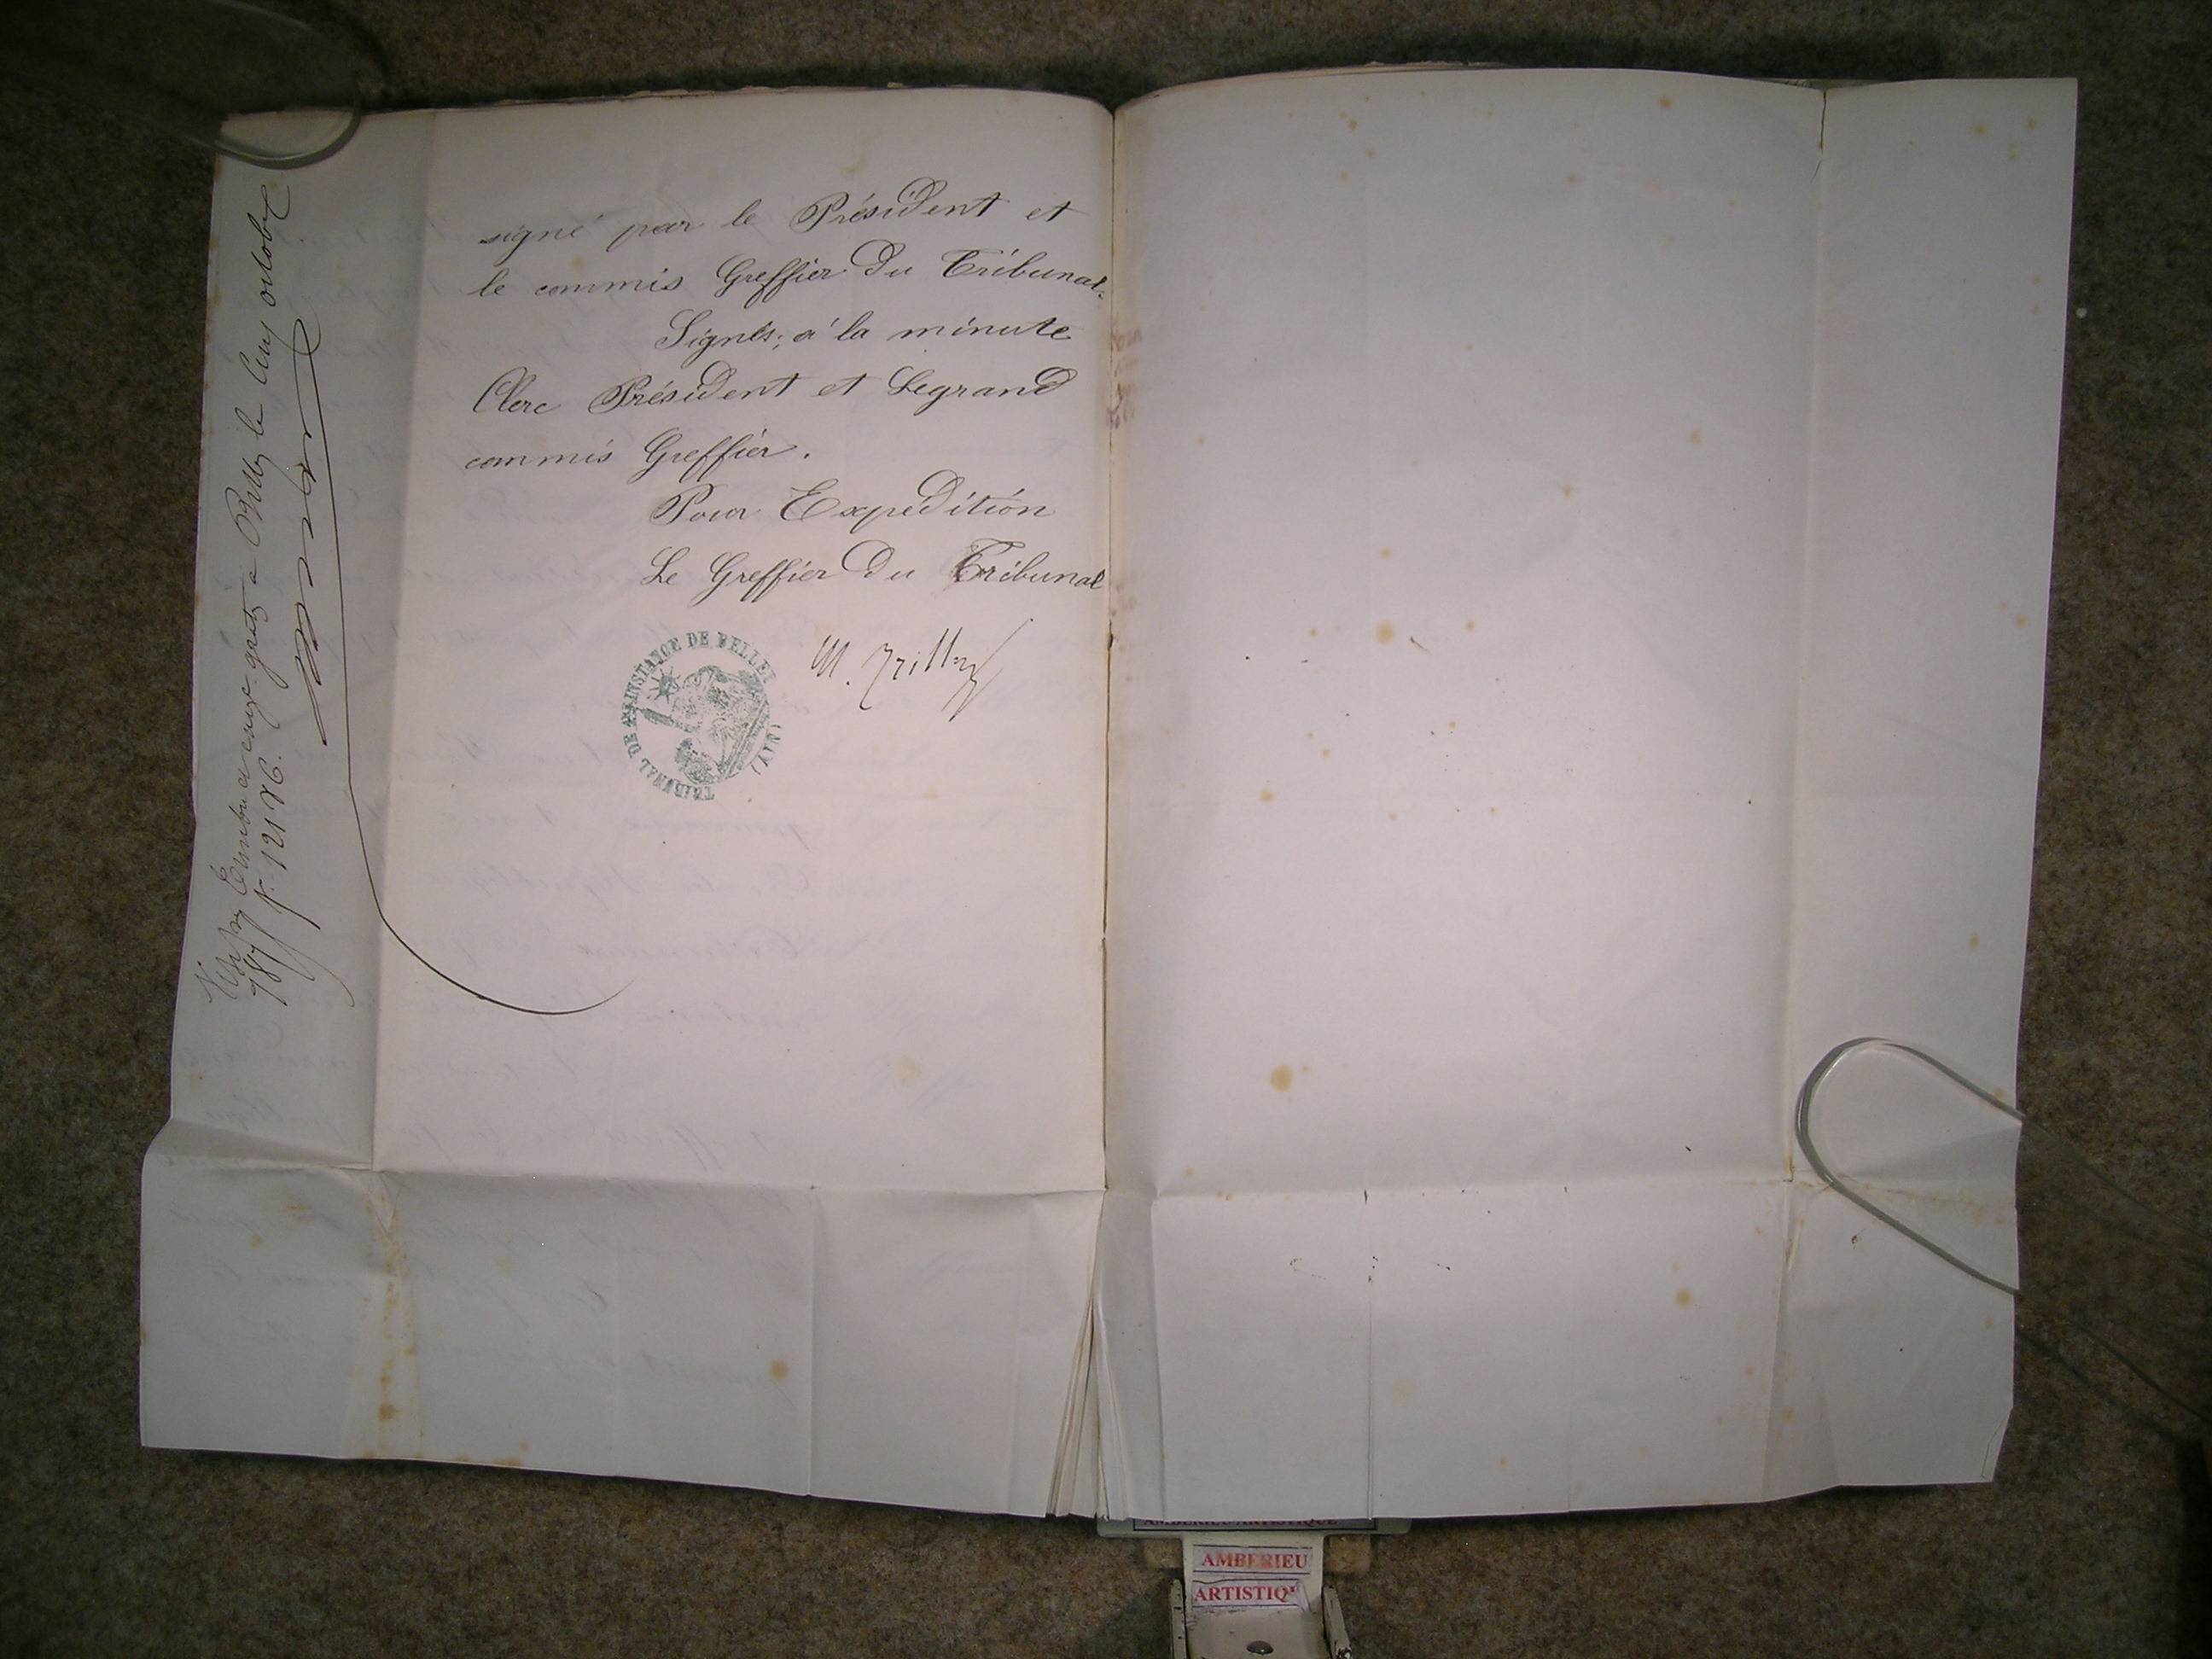 signé par le Président et
le commis Greffier du Tribunal.
Signés; à la minute
Clerc Président et Legrand
commis Greffier.
Pour Expédition
Le Greffier du Tribunal
TRIBUNAL DE 1ère INSTANCE DE BELLEY (AIN)
Timbre et enregt gratis à Belley le cinq octobre
187 f° 121 V° C
AMBERIEU ARTISTIQUE
AMBERIEU
ARTISTIQU